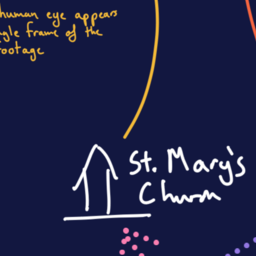 human eye appears
gle frame of the
ootage
St. Mary's
Church